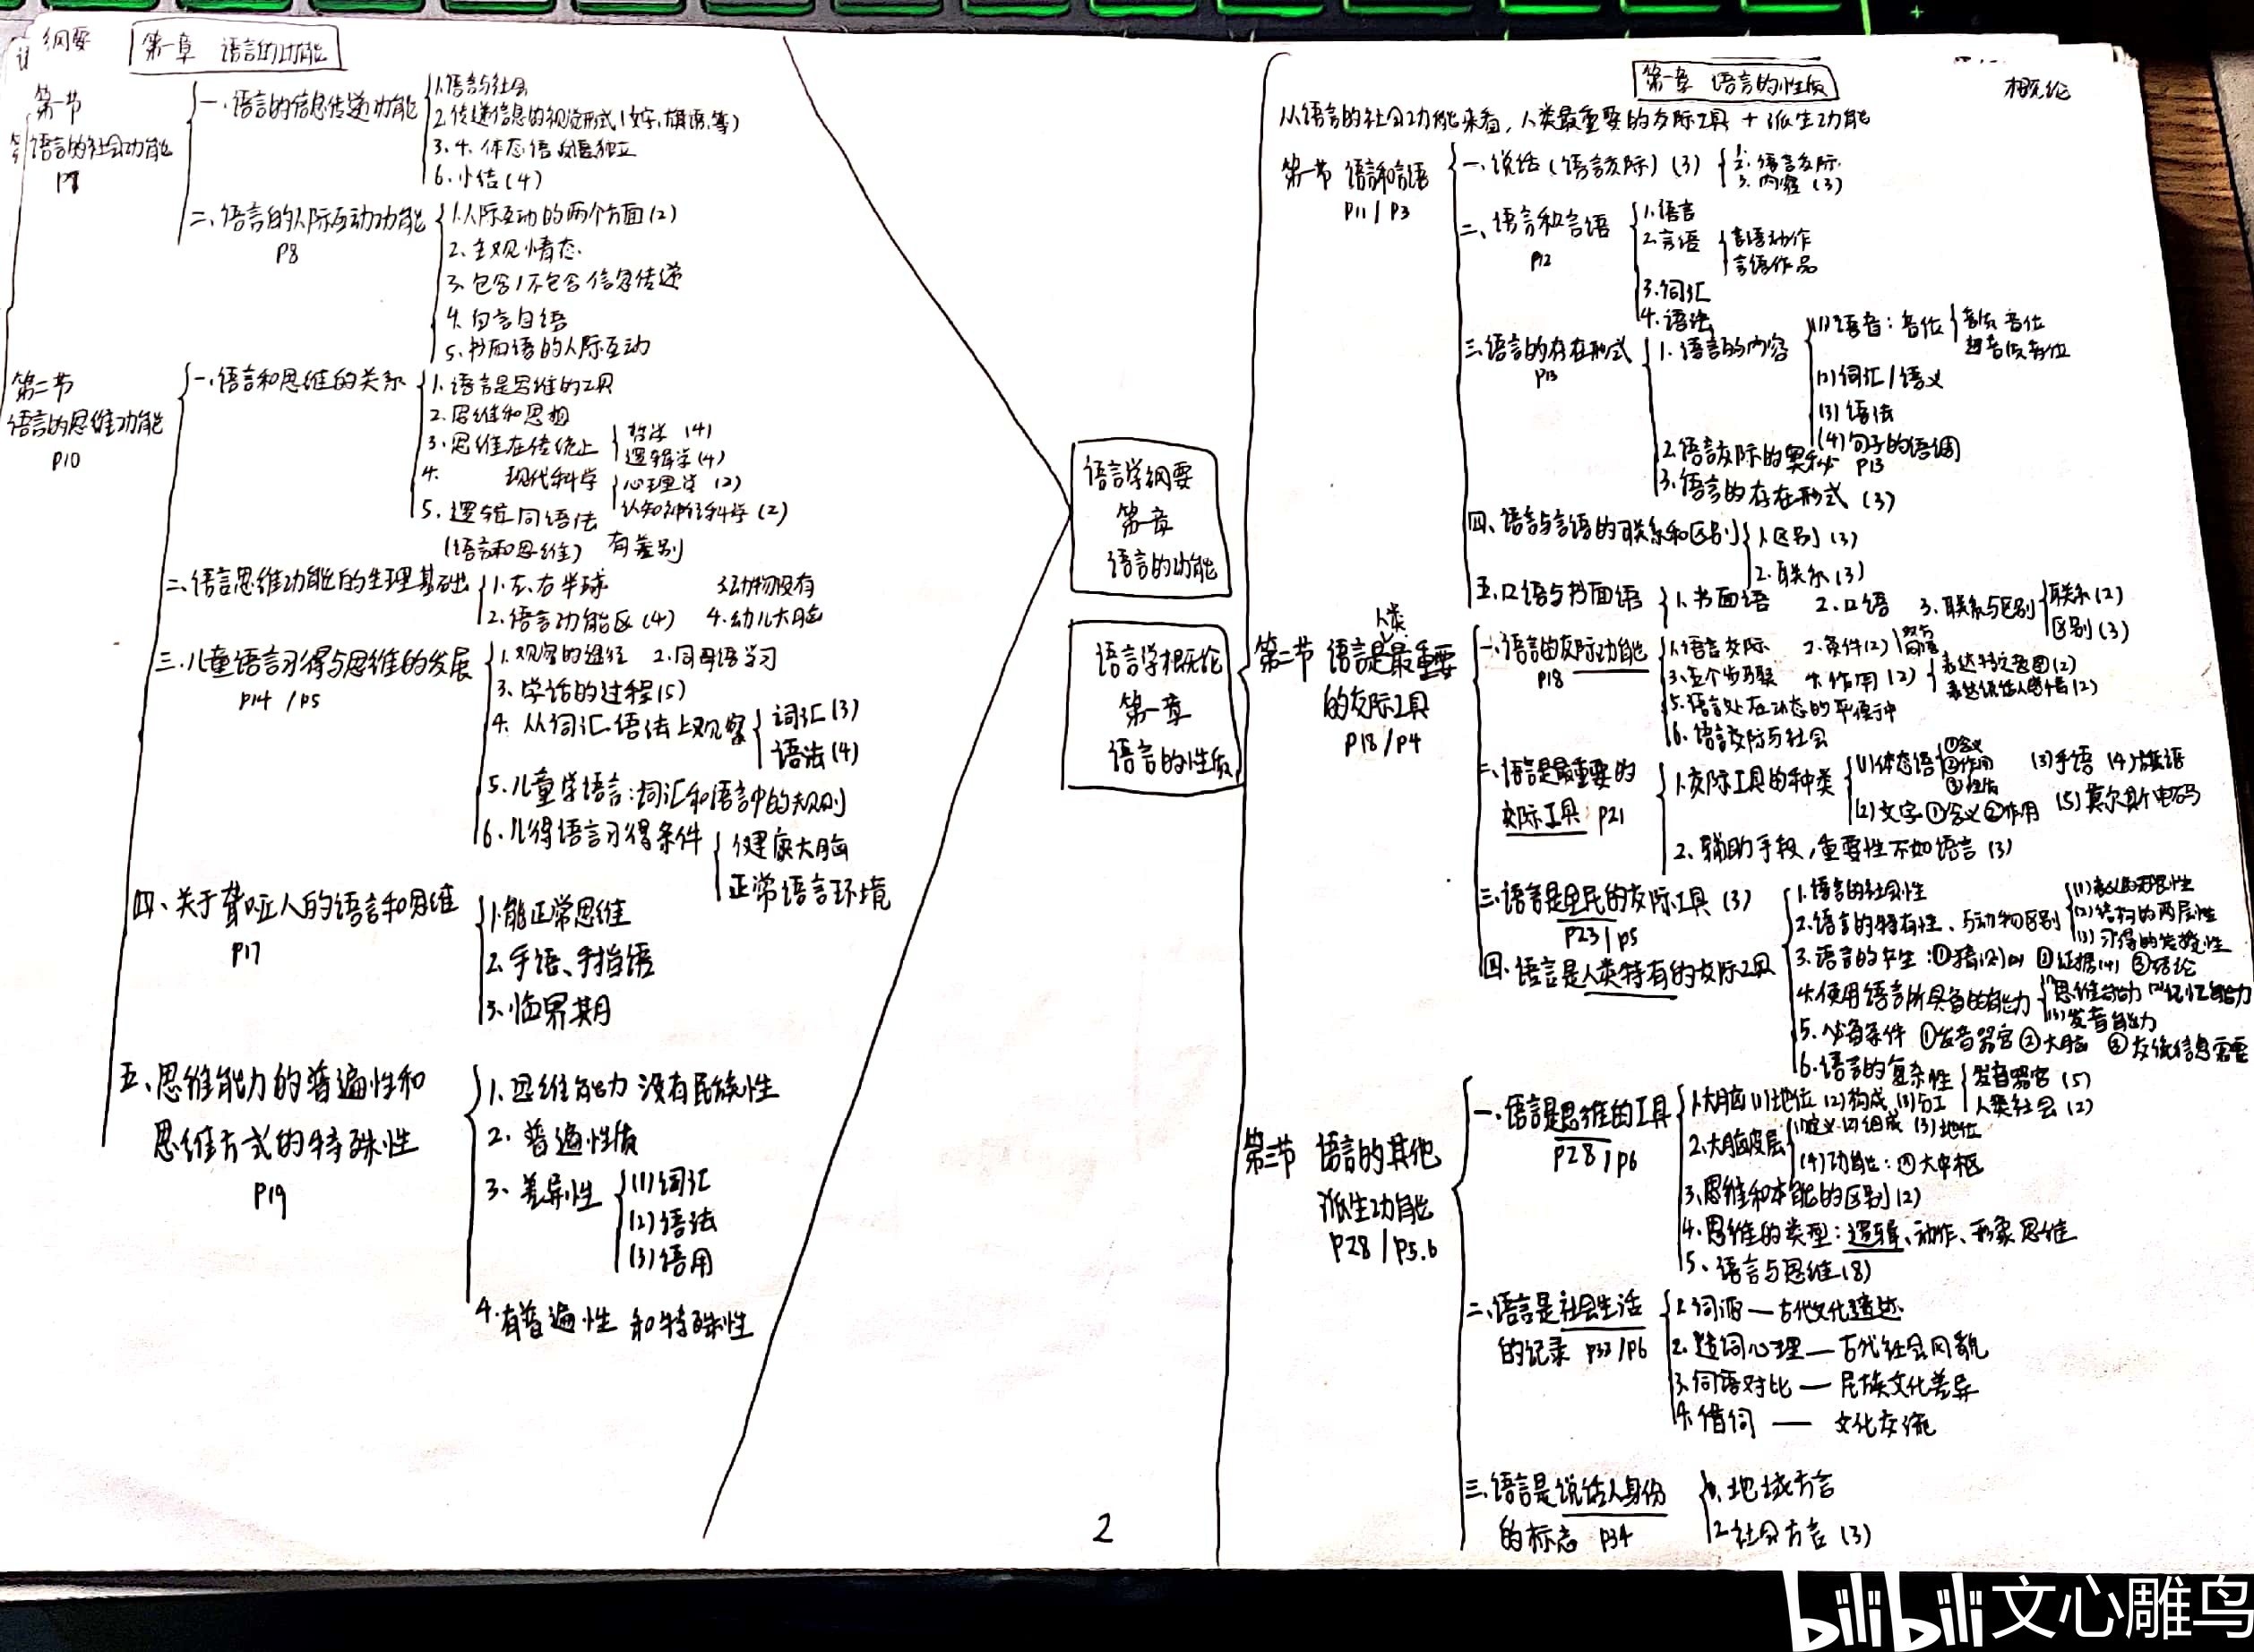 纲要
第一章 语言的功能
第一节
语言的社会功能
一.语言的信息传递功能
1.语言与社会
2.传递信息的视觉形式(文字,旗语,等)
3.4.体态语
独立
6.小结(4)
二、语言的人际互动功能
P8
1.人际互动的两个方面(2)
2.主观情态
3.包含/不包含信息传递
4.自言自语
5.书面语的人际互动
第二节
语言的思维功能
P10
一.语言和思维的关系
1.语言是思维的工具
2.思维和思想
3.思维在传统上
哲学 (4)
逻辑学(4)
4. 现代科学
心理学 (2)
认知神经科学(2)
5.逻辑同语法
(语言和思维) 有差别
二.语言思维功能的生理基础
1.左.右半球 3.动物没有
2.语言功能区(4) 4.幼儿大脑
三.儿童语言习得与思维的发展
P14 /P5
1.观察的途径 2.同母语学习
3.学话的过程(5)
4.从词汇.语法上观察
词汇(3)
语法(4)
5.儿童学语言:词汇和语言中的规则
6.儿得语言习得条件
健康大脑
正常语言环境
四、关于聋哑人的语言和思维
P17
1.能正常思维
2.手语、手指语
3.临界期
五、思维能力的普遍性和
思维方式的特殊性
P19
1.思维能力 没有民族性
2.普遍性质
3.差异性
(1)词汇
(2)语法
(3)语用
4.有普遍性 和特殊性
语言学纲要
第一章
语言的功能
语言学概论
第一章
语言的性质
2
第一章 语言的性质
概论
从语言的社会功能来看,人类最重要的交际工具 + 派生功能
第一节 语言和言语
P11 / P3
一.说话(语言交际) (3)
2.语言交际
3.内容 (3)
二、语言和言语
P12
1.语言
2.言语
言语动作
言语作品
3.词汇
4.语法
三.语言的存在形式
P13
1.语言的内容
(1)语音:音位
音质音位
超音质音位
(2)词汇/语义
(3)语法
(4)句子的语调
2.语言交际的奥秘 P13
3.语言的存在形式 (3)
四、语言与言语的联系和区别
1.区别(3)
2.联系(3)
五.口语与书面语
1.书面语 2.口语 3.联系与区别
联系(2)
区别(3)
第二节 语言是人类最重要
的交际工具
P18/P4
一.语言的交际功能
P18
1.语言交际 2.条件(2)
3.五个步骤 4.作用(2)
表达特定意图(2)
表达说话人感情(2)
5.语言处在动态的平衡中
6.语言交际与社会
二.语言是最重要的
交际工具 P21
1.交际工具的种类
(1)体态语 ①含义 ②作用 (3)手语 (4)旗语
(2)文字①含义②作用 (5)莫尔斯电码
2.辅助手段,重要性不如语言(3)
三.语言是全民的交际工具 (3)
P23/P5
四.语言是人类特有的交际工具
1.语言的社会性
2.语言的特有性、与动物区别
(2)结构的两层性
3.语言的产生:①猜测 ②证据(4) ③结论
4.使用语言所具备的能力
思维能力 记忆能力
(3)发音能力
5.必备条件 ①发音器官②大脑 ③交流信息需要
6.语言的复杂性
发音器官 (5)
人类社会 (2)
第三节 语言的其他
派生功能
P28 / P5.6
一.语言是思维的工具
P28/P6
1.大脑(1)地位 (2)构成 (3)分工
2.大脑皮层
(1)定义 (2)组成 (3)地位
(4)功能:④大中枢
3.思维和本能的区别(2)
4.思维的类型:逻辑、动作、形象思维
5.语言与思维(8)
二.语言是社会生活
的记录 P33/P6
1.词源—古代文化遗迹
2.造词心理—古代社会风貌
3.词语对比—民族文化差异
4.借词 — 文化交流
三.语言是说话人身份
的标志 P34
1.地域方言
2.社会方言 (3)
bilibili 文心雕鸟